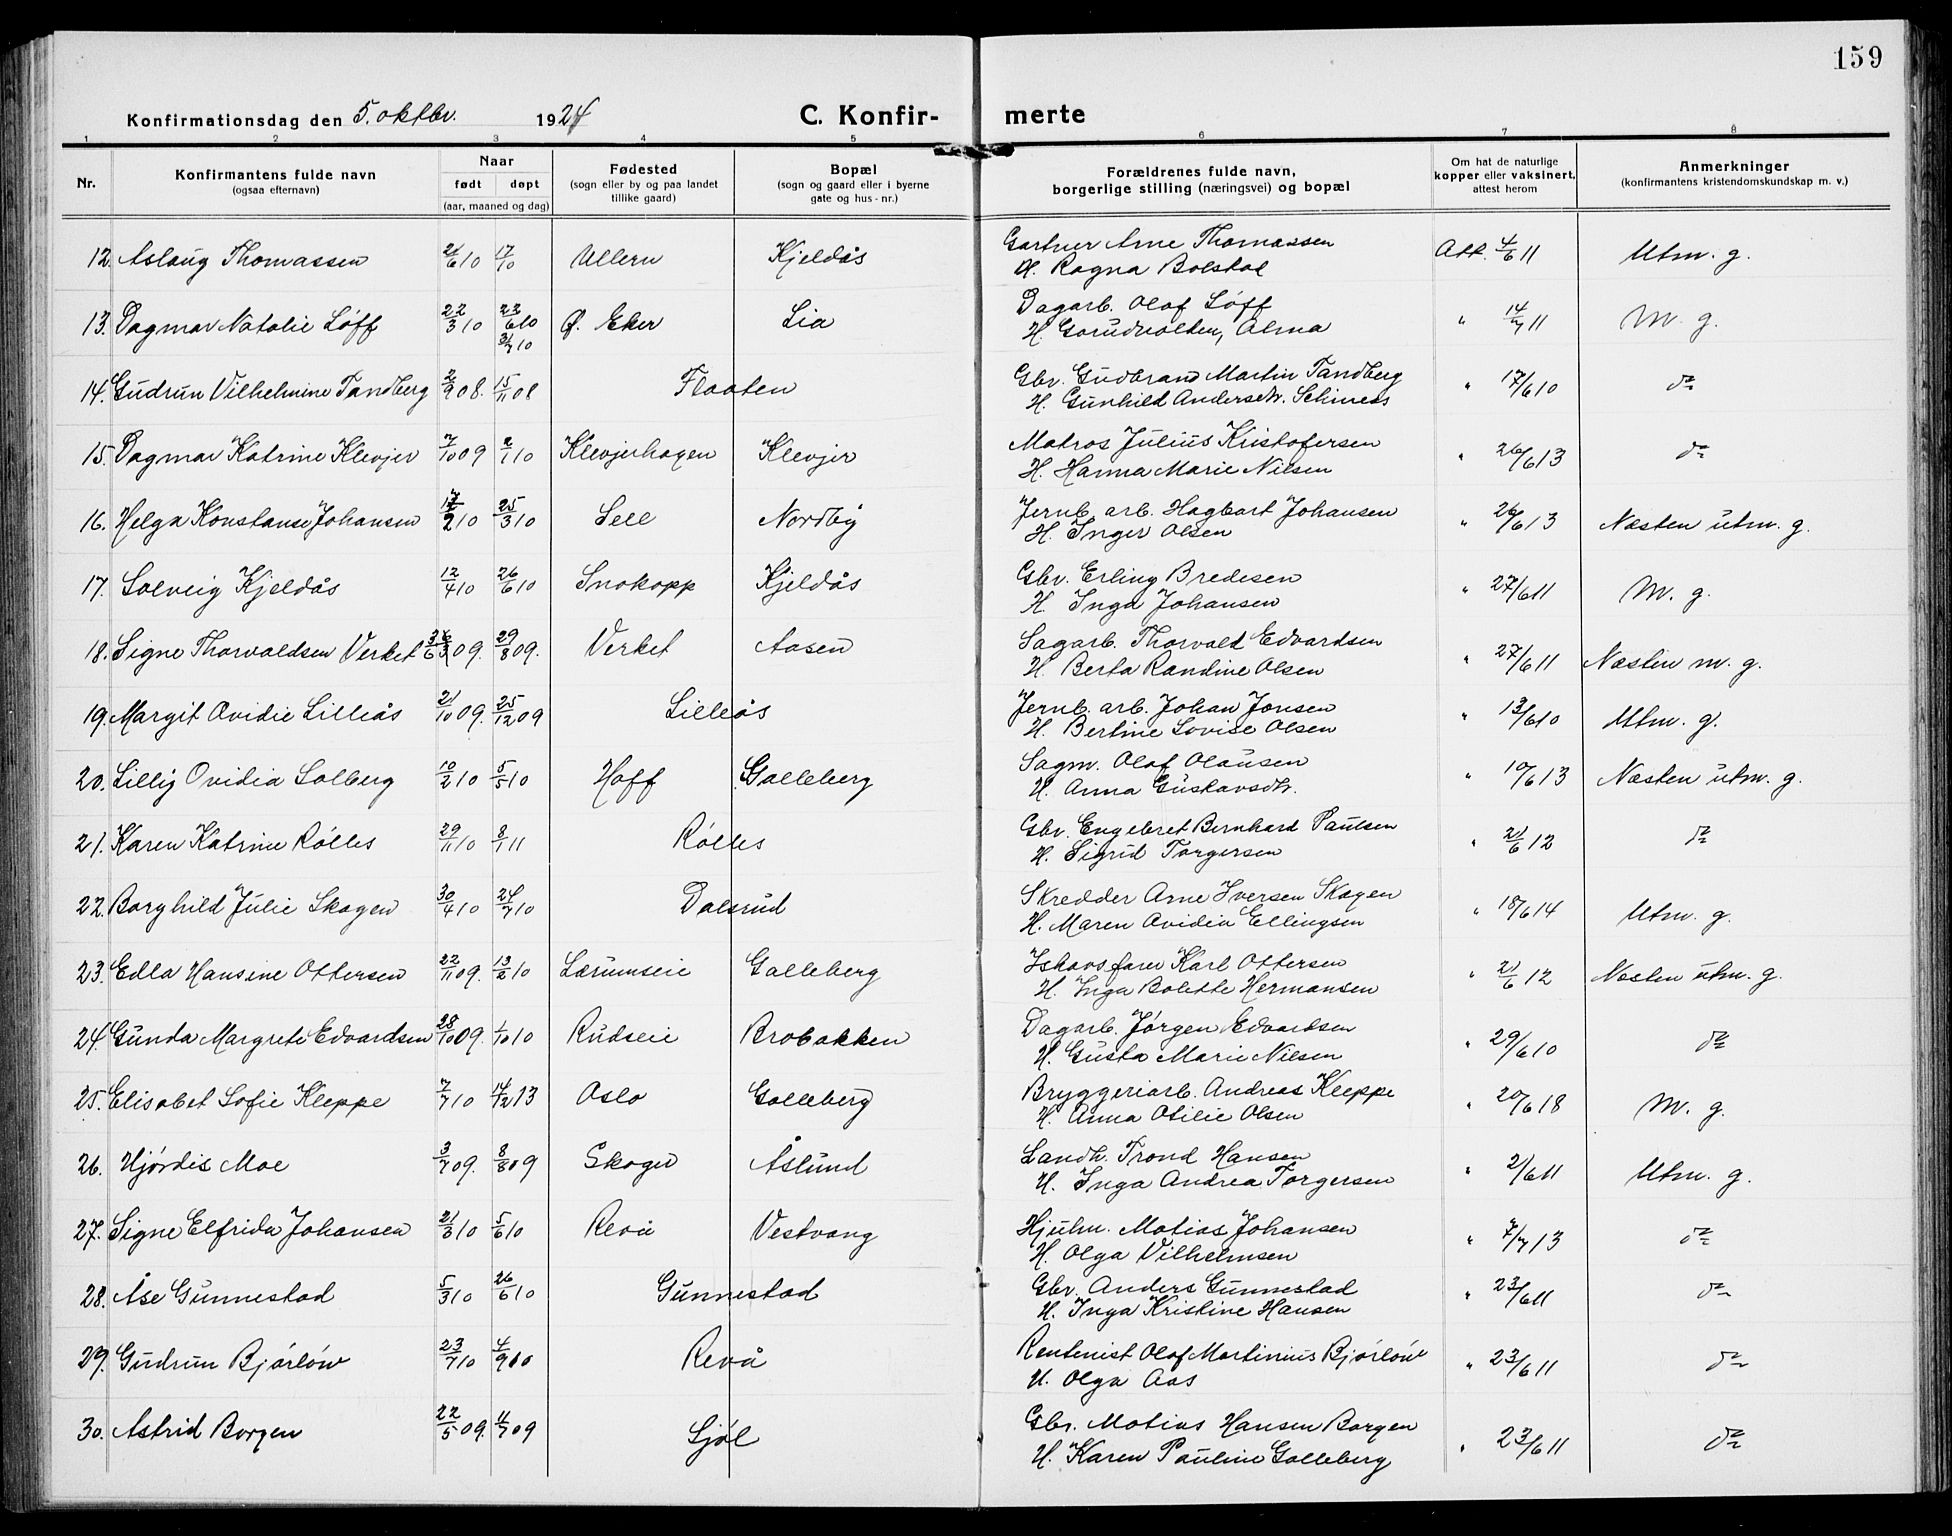 159
Konfirmationsdag den 5. oktbr. 1924 C. Konfir- merte
1 2 3 4 5 6 7 8
Nr. Konfirmantens fulde navn (ogsaa efternavn) Naar født døpt (aar, maaned og dag) Fødested (sogn eller by og paa landet tillike gaard) Bopæl (sogn og gaard eller i byerne gate og hus-nr.) Forældrenes fulde navn, borgerlige stilling (næringsvei) og bopæl Om hat de naturlige kopper eller vaksinert, attest herom Anmerkninger (konfirmantens kristendomskundskap m. v.)
12. Aslaug Thomassen 21/6 10 17/10 Ullern Kjeldås Gartner Arne Thomassen Att. 4/6 11 Utm. g.
H. Ragna Bolstad
13. Dagmar Natalie Løff 22/3 10 23/6 10 Ø. Eker Lia Dagarb. Olaf Løff " 14/7 11 M. g.
31/7 10 H. Gorudvolden, Alma
14. Gudrun Vilhelmine Tandberg 2/9 08. 15/11 08 Flaaten Gbr. Gudbrand Martin Tandberg " 17/6 10 do
H. Gunhild Andersdtr. Schiness
15. Dagmar Katrine Klevjer 7/10 09 2/1 10 Klevjerhagen Klevjer Matros Julius Kristofersen " 26/6 13 do
H. Hanna Marie Nilsen
16. Helga Konstanse Johansen 17/2 10 25/3 10 Sell Nordby Jernb. arb. Hagbart Johansen " 26/6 13 Næsten utm. g.
H. Inger Olsen
17. Solveig Kjeldås 12/4 10 26/6 10 Snekopp Kjeldås Gbr. Erling Bredesen " 27/6 11 M. g.
H. Inga Johansen
18. Signe Thorvaldsen Verket 09. 29/8 09. Verket Aasen Sagarb. Thorvald Edvardsen " 27/6 11 Næsten m. g.
H. Berta Randine Olsen
19. Margit Ovidie Lilleås 21/10 09. 25/12 09 Lilleås Jernb. arb. Johan Jonsen " 13/6 10 Utm. g.
H. Bertine Lovise Olsen
20. Lilly Ovidia Solberg 10/2 10 5/5 10 Hoff Galleberg Sagm. Olaf Olausen " 10/6 13 Næsten utm. g.
H. Anna Gustavsdtr.
21. Karen Katrine Rølles 29/11 10 8/1 11 Rølles Gbr. Engebret Bernhard Paulsen " 21/6 12 do
H. Sigrid Torgersen
22. Borghild Julie Skogen 30/4 10 24/7 10 Dalsrud Skredder Arne Iversen Skogen " 18/6 14 Utm. g.
H. Maren Ovidia Ellingsen
23. Edla Hansine Ottersen 22/11 09. 13/2 10 Lærumseie Galleberg Ishavsfarer Karl Ottersen " 21/6 12 Næsten utm. g.
H. Inga Bolette Hermansen
24. Gunda Margrete Edvardsen 28/10 09. 1/10 10 Rudseie Brobakken Dagarb. Jørgen Edvardsen " 29/6 10 do
H. Gusta Marie Nilsen
25. Elisabet Sofie Kleppe 7/7 10 14/12 13 Oslo Galleberg Bryggeriarb. Andreas Kleppe " 20/6 18 M. g.
H. Anna Otilie Olsen
26. Hjørdis Moe 3/7 09. 8/8 09 Skoger Åslund Landh. Trond Hansen " 2/6 11 Utm. g.
H. Inga Andrea Torgersen
27. Signe Elfrida Johansen 21/3 10 5/6 10 Revå Vestvang Hjulm. Matias Johansen " 7/7 13 do
H. Olga Vilhelmsen
28. Åse Gunnestad 5/3 10 26/6 10 Gunnestad Gbr. Anders Gunnestad " 23/6 11 do
H. Inga Kristine Hansen
29. Gudrun Bjørløw 23/7 10 4/9 10 Revå Rentenist Olaf Martinius Bjørløw " 23/6 11 do
H. Olga Aas
30. Astrid Borgen 22/5 09. 11/7 09 Sjøl Gbr. Matias Hansen Borgen " 23/6 11 do
H. Karen Pauline Galleberg